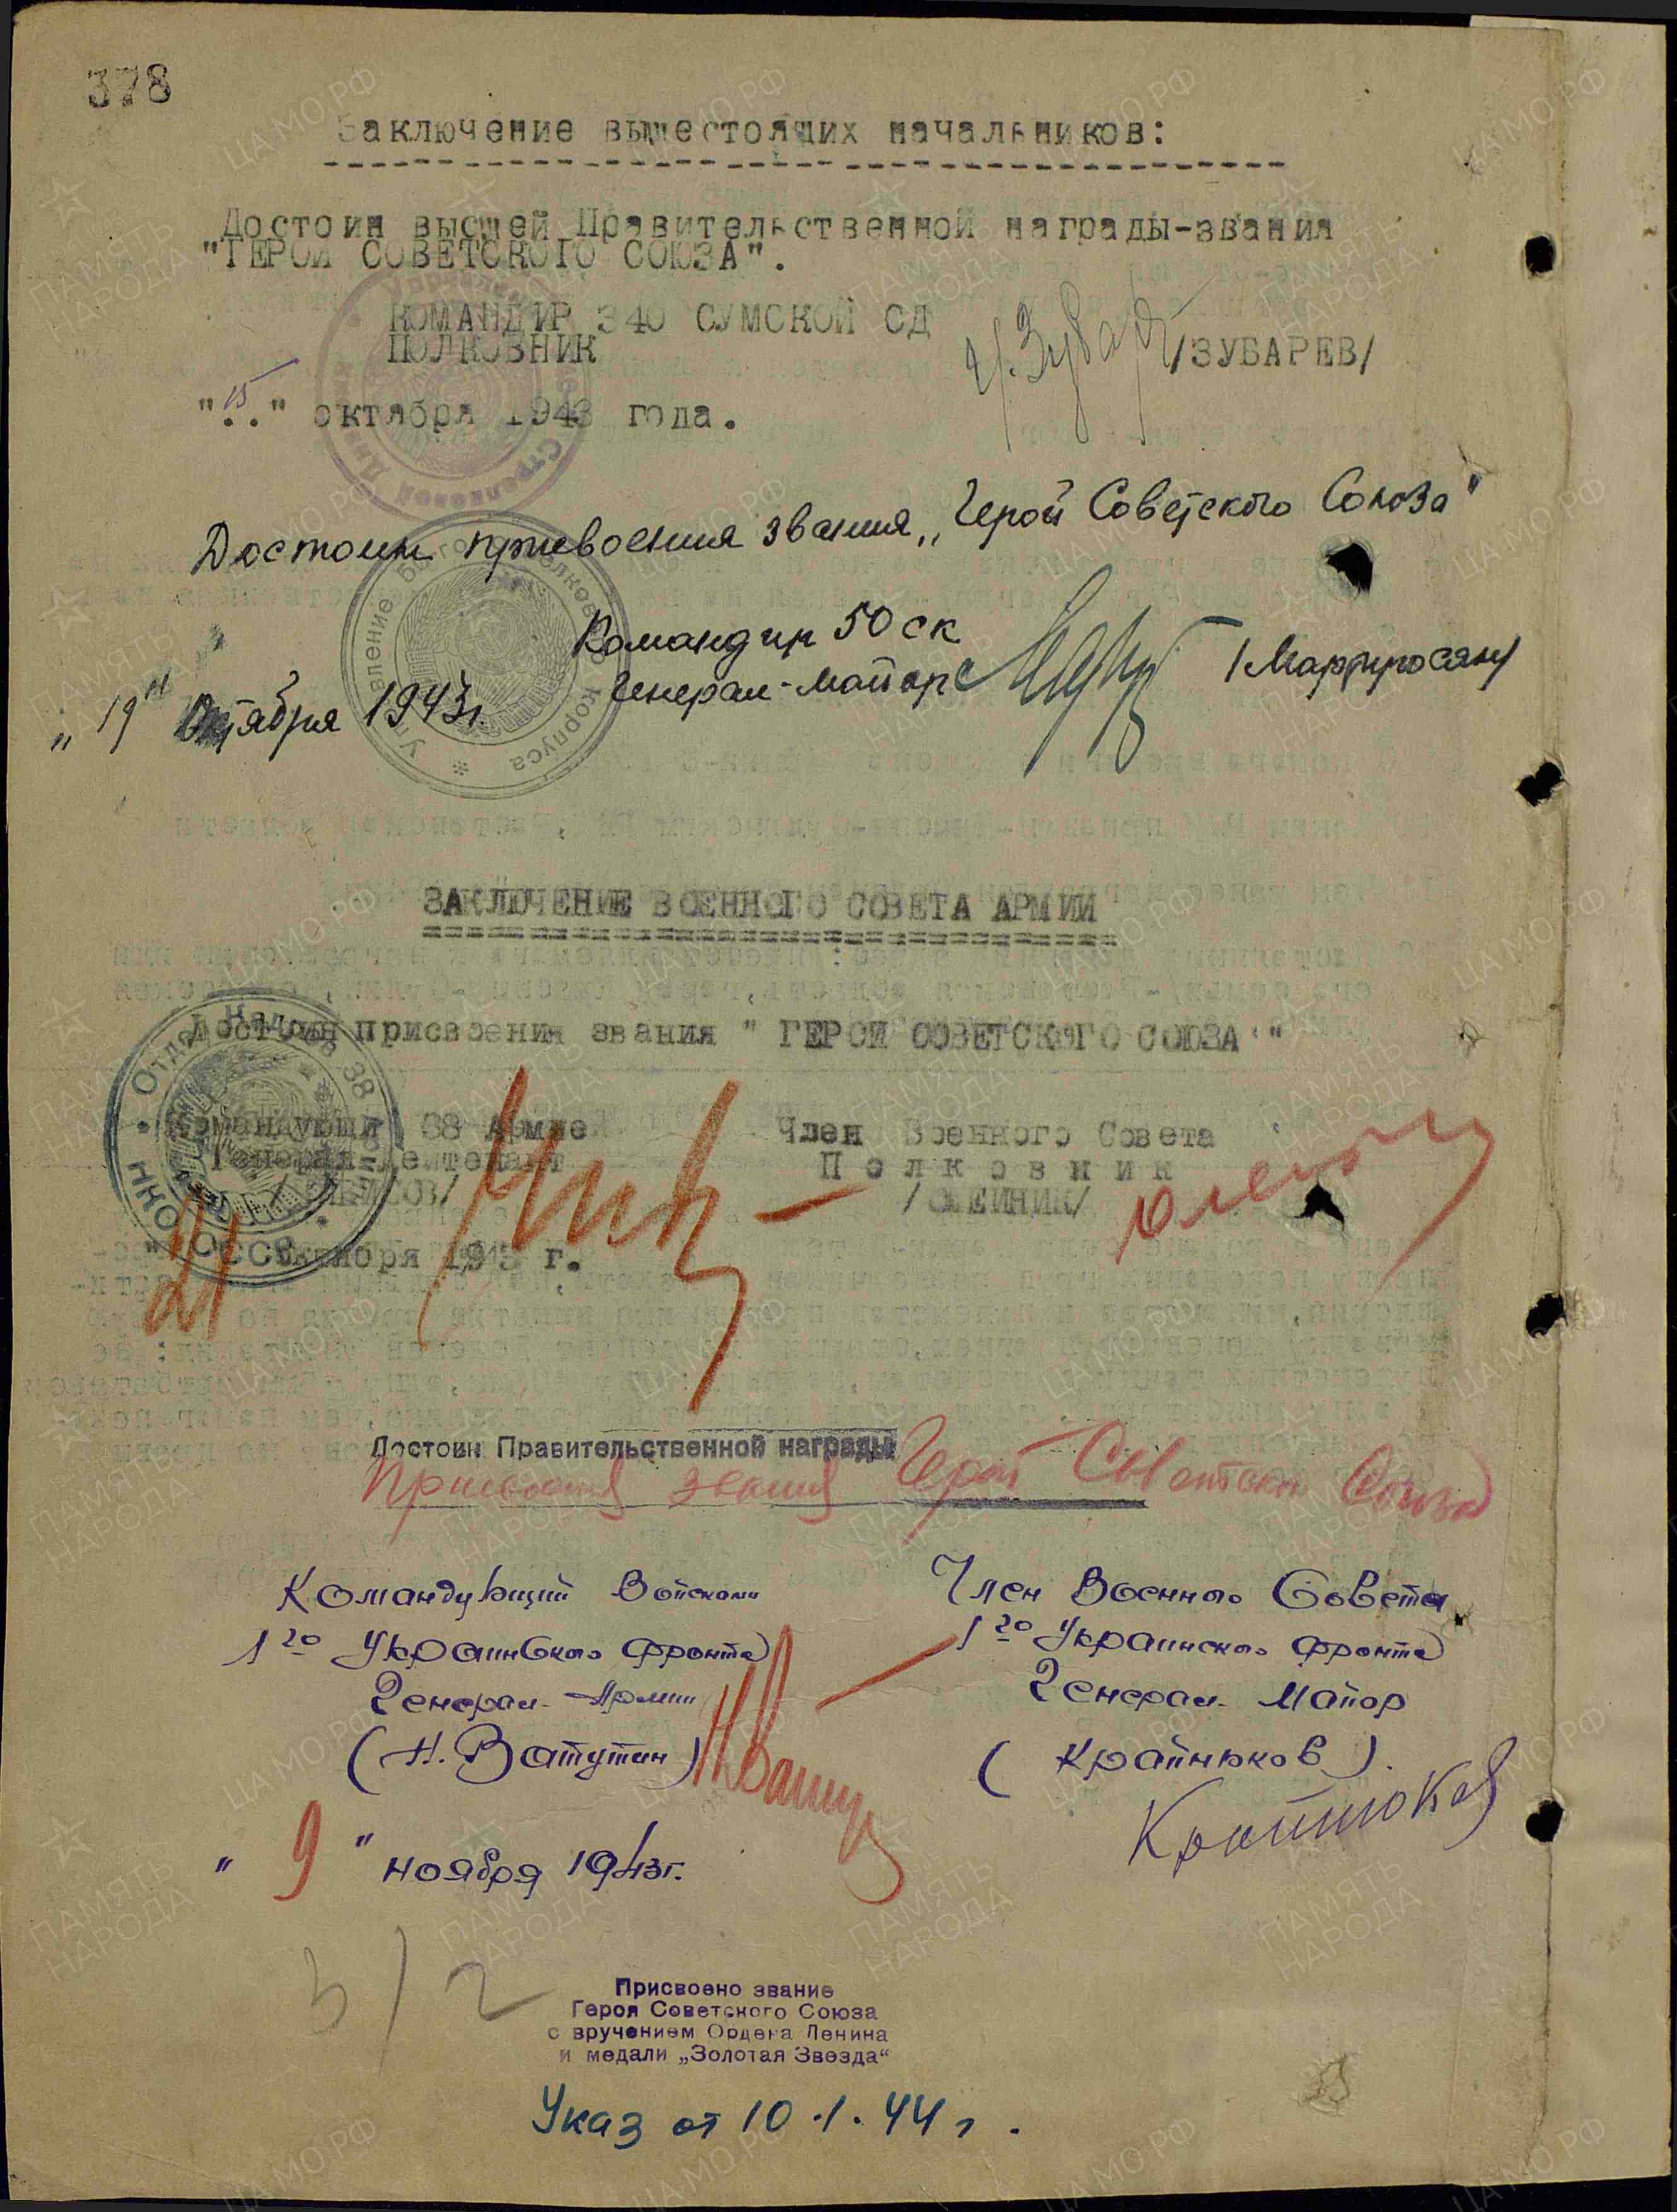 378
Заключение вышестоящих начальников:
Достоин высшей Правительственной награды-звания
"ГЕРОЙ СОВЕТСКОГО СОЮЗА".
КОМАНДИР 340 СУМСКОЙ СД
ПОЛКОВНИК /ЗУБАРЕВ/
"15" октября 1943 года.
Достоин присвоения звания „Герой Советского Союза"
Командир 50 ск
Генерал-майор /Мартиросян/
„19" Октября 1943г.
Управление 50го Стрелкового Корпуса
ЗАКЛЮЧЕНИЕ ВОЕННОГО СОВЕТА АРМИИ
Достоин присвоения звания " ГЕРОЙ СОВЕТСКОГО СОЮЗА "
Отдел Кадров 38
НКО СССР
Командующий 38 Армие Член Военного Совета
Генерал-Лейтенант Полковник
/ЧИБИСОВ/ /ОЛЕЙНИК/
21 октября 1943 г.
Достоин Правительственной награды
Присвоения звания Герой Советского Союза
Командующий Войсками Член Военного Совета
1го Украинского фронта 1го Украинского фронта
Генерал Армии Генерал Майор
(Н. Ватутин) (Крайнюков).
Крайнюков
„9" ноября 1943г.
3/2
Присвоено звание
Героя Советского Союза
с вручением Ордена Ленина
и медали „Золотая Звезда"
Указ от 10.1.44г.
ПАМЯТЬ НАРОДА
ЦАМО.РФ